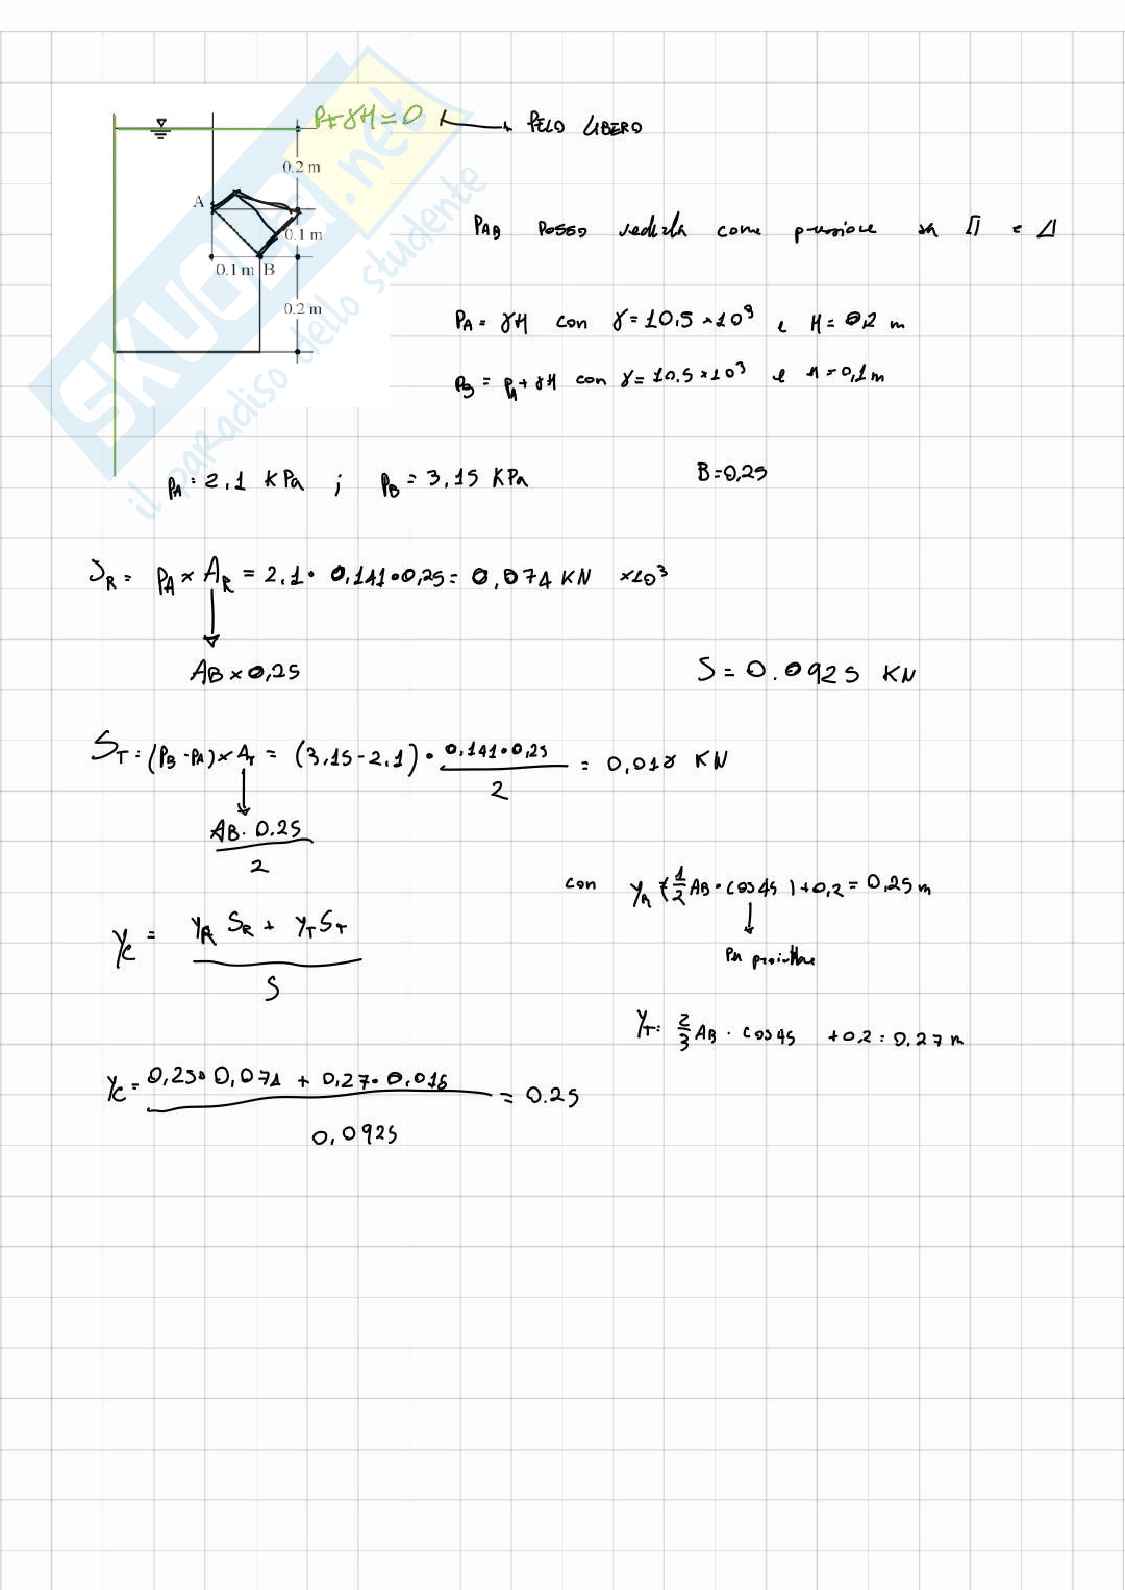 P+γH=0 → PELO LIBERO
0.2 m
A
0.1 m
0.1 m B
0.2 m
SKUOLA.net
il paradiso dello studente
P_AB POSSO vederla come pressione su ▯ e △
P_A = γH con γ = 10,5 × 10³ e H = 0,2 m
P_B = P_A + γH con γ = 10.5 × 10³ e H = 0,1 m
P_A = 2,1 KPa ; P_B = 3,15 KPa
B = 0,25
S_R = P_A × A_R = 2,1 · 0,141 · 0,25 = 0,074 KN ×10³
AB × 0,25
S = 0.0925 KN
S_T = (P_B - P_A) × A_T = (3,15 - 2,1) · 0,141 · 0,25 / 2 = 0,018 KN
AB · 0.25 / 2
con y_R = (1/2 AB · cos 45) + 0,2 = 0,25 m
Per proiettare
y_C = y_R S_R + y_T S_T / S
y_T = 2/3 AB · cos 45 + 0,2 = 0,27 m
y_C = 0,25 · 0,074 + 0,27 · 0,018 / 0,0925 = 0.25